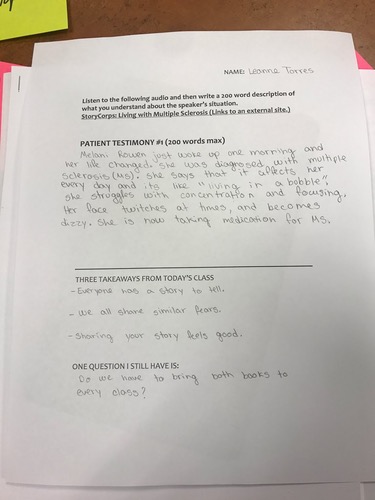 NAME: Leanne Torres
Listen to the following audio and then write a 200 word description of
what you understand about the speaker's situation.
StoryCorps: Living with Multiple Sclerosis (Links to an external site.)
PATIENT TESTIMONY #1 (200 words max)
Melani Rowen just woke up one morning and
her life changed. She was diagnosed with multiple
sclerosis (MS). She says that it affects her
every day and its like "living in a bobble",
she struggles with concentration and focusing,
Her face twitches at times, and becomes
dizzy. She is now taking medication for MS.
THREE TAKEAWAYS FROM TODAY'S CLASS
- Everyone has a story to tell.
- we all share similar fears.
- Sharing your story feels good.
ONE QUESTION I STILL HAVE IS:
Do we have to bring both books to
every class?